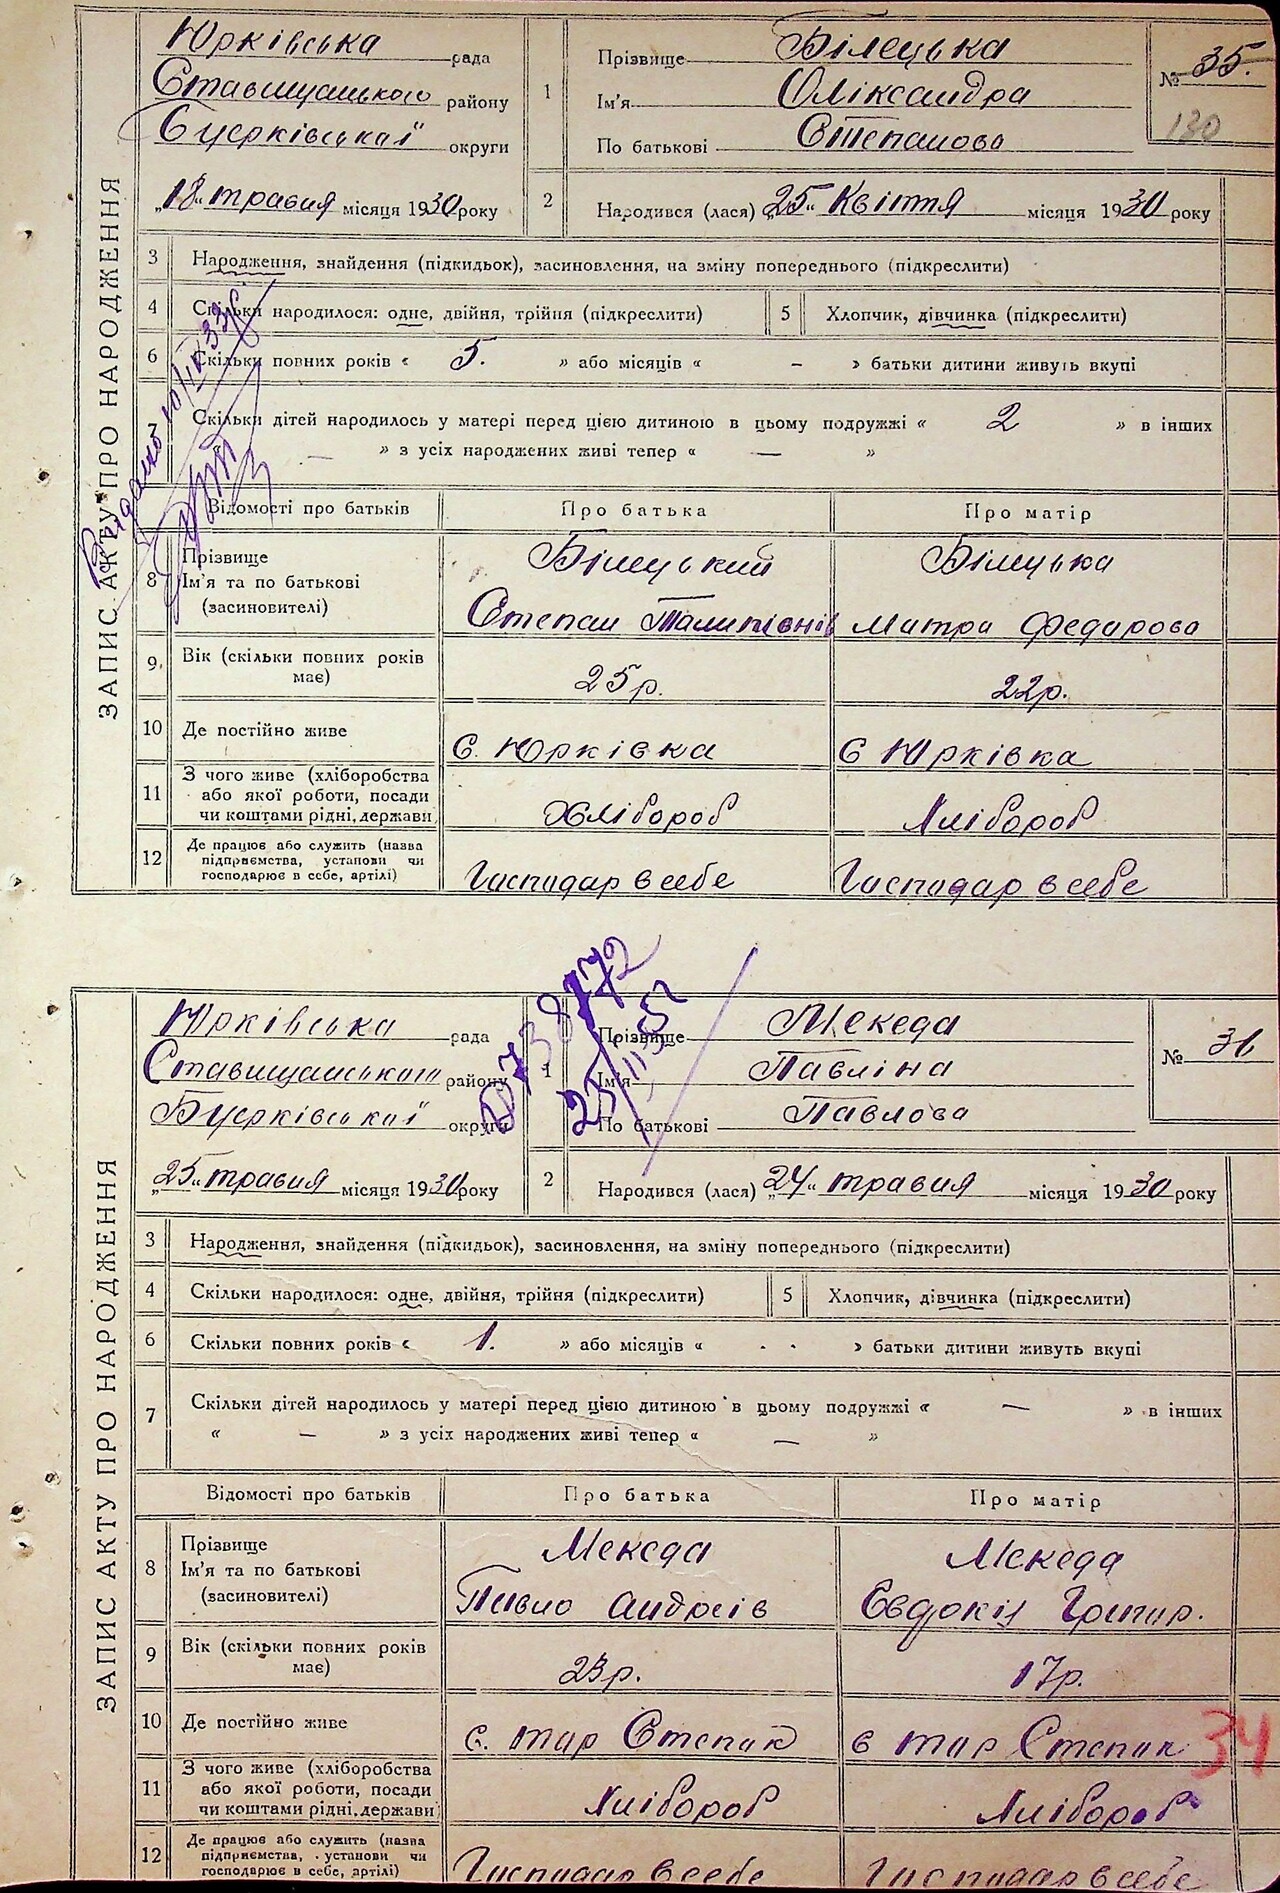 ЗАПИС АКТУ ПРО НАРОДЖЕННЯ
Юрківська рада
Ставищанського району
Бцерківської округи
„18“ травня місяця 1930 року
1 Прізвище Білецька
Ім'я Олікcандра
По батькові Степанова
№ 35.
130
2 Народився (лася) „25“ Квіття місяця 1930 року
3 Народження, знайдення (підкидьок), засиновлення, на зміну попереднього (підкреслити)
4 Скільки народилося: одне, двійня, трійня (підкреслити) 5 Хлопчик, дівчинка (підкреслити)
6 Скільки повних років « 5. » або місяців « – » батьки дитини живуть вкупі
7 Скільки дітей народилось у матері перед цією дитиною в цьому подружжі « 2 » в інших
« — » з усіх народжених живі тепер « — »
Відомості про батьків Про батька Про матір
8 Прізвище Білецький Білецька
Ім'я та по батькові
(засиновителі) Степан Мотра Федарова
9 Вік (скільки повних років має) 25 р. 22 р.
10 Де постійно живе с. Юрківка с Юрківка
11 З чого живе (хліборобства
або якої роботи, посади
чи коштами рідні, держави) Хлібороб Хлібороб
12 Де працює або служить (назва
підприємства, установи чи
господарює в себе, артілі) Господар в себе Господар в себе
ЗАПИС АКТУ ПРО НАРОДЖЕННЯ
Юрківська рада
Ставищанського району
Бцерківської округи
„25“ травня місяця 1930 року
738772
1 Прізвище Мекеда
Ім'я Павліна
По батькові Павлова
№ 36
2 Народився (лася) „24“ травня місяця 1930 року
3 Народження, знайдення (підкидьок), засиновлення, на зміну попереднього (підкреслити)
4 Скільки народилося: одне, двійня, трійня (підкреслити) 5 Хлопчик, дівчинка (підкреслити)
6 Скільки повних років « 1. » або місяців « - - » батьки дитини живуть вкупі
7 Скільки дітей народилось у матері перед цією дитиною в цьому подружжі « — » в інших
« — » з усіх народжених живі тепер « — »
Відомості про батьків Про батька Про матір
8 Прізвище Мекеда Мекеда
Ім'я та по батькові
(засиновителі) Павло Андреів Євдокія Григор.
9 Вік (скільки повних років має) 23 р. 17 р.
10 Де постійно живе с. тар Степок с тар Степок
34
11 З чого живе (хліборобства
або якої роботи, посади
чи коштами рідні, держави) Хлібороб Хлібороб
12 Де працює або служить (назва
підприємства, установи чи
господарює в себе, артілі) Господар в себе Господар в себе